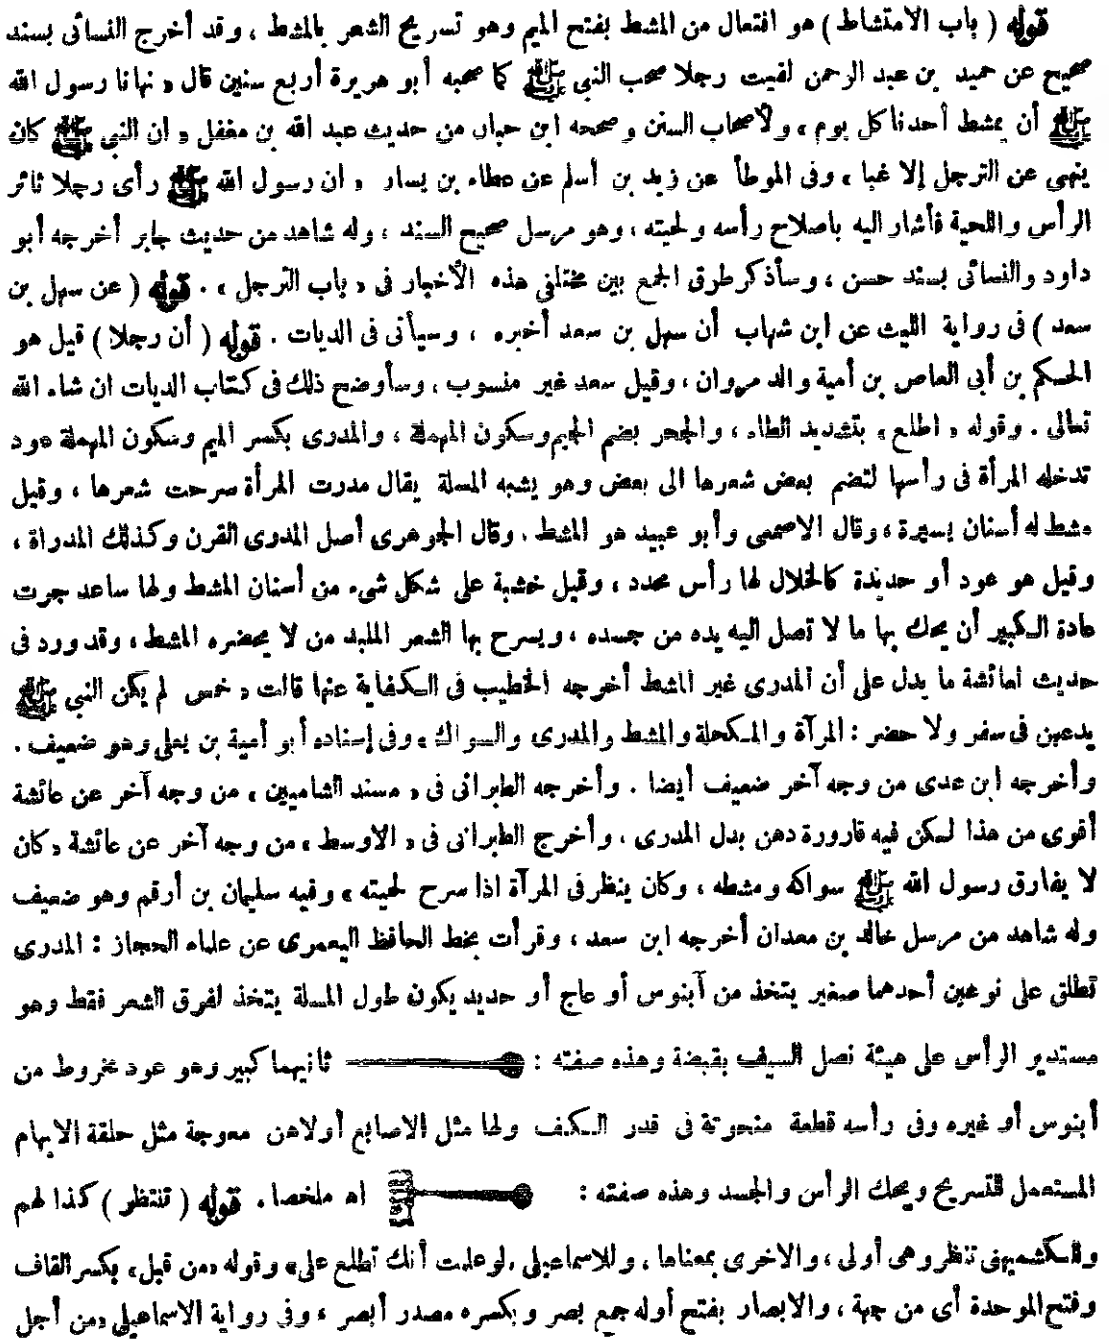 قوله ( باب الامتشاط ) هو افتعال من المشط بفتح الميم وهو تسريح الشعر بالمشط ، وقد أخرج النسائى بسند
صحيح عن حميد بن عبد الرحمن لقيت رجلا صحب النبي ﷺ كما صحبه أبو هريرة أربع سنين قال « نهانا رسول الله
ﷺ أن يمشط أحدنا كل يوم ، ولأصحاب السنن وصححه ابن حبان من حديث عبد الله بن مغفل « ان النبي ﷺ كان
ينهى عن الترجل إلا غبا ، وفى الموطأ عن زيد بن أسلم عن عطاء بن يسار « ان رسول الله ﷺ رأى رجلا ثائر
الرأس واللحية فأشار اليه باصلاح رأسه ولحيته ، وهو مرسل صحيح السند ، وله شاهد من حديث جابر أخرجه أبو
داود والنسائى بسند حسن ، وسأذكر طرق الجمع بين مختلفى هذه الأخبار فى « باب الترجل » . قوله ( عن سهل بن
سعد ) فى رواية الليث عن ابن شهاب أن سهل بن سعد أخبره ، وسيأتى فى الديات . قوله ( أن رجلا ) قيل هو
الحكم بن أبى العاص بن أمية والد مروان ، وقيل سعد غير منسوب ، وسأوضح ذلك فى كتاب الديات ان شاء الله
تعالى . وقوله « اطلع » بتشديد الطاء ، والجحر بضم الجيم وسكون المهملة ، والمدرى بكسر الميم وسكون المهملة عود
تدخله المرأة فى رأسها لتضم بعض شعرها الى بعض وهو يشبه المسلة يقال مدرت المرأة سرحت شعرها ، وقيل
مشط له أسنان يسيرة ، وقال الاصمعى وأبو عبيد هو المشط . وقال الجوهرى أصل المدرى القرن وكذلك المدراة ،
وقيل هو عود أو حديدة كالخلال لها رأس محدد ، وقيل خشبة على شكل شىء من أسنان المشط ولها ساعد جرت
عادة الكبير أن يحك بها ما لا تصل اليه يده من جسده ، ويسرح بها الشعر الملبد من لا يحضره المشط ، وقد ورد فى
حديث لعائشة ما يدل على أن المدرى غير المشط أخرجه الخطيب فى الكفاية عنها قالت « خمس لم يكن النبي ﷺ
يدعهن فى سفر ولا حضر : المرآة والمكحلة والمشط والمدرى والسواك » وفى إسناده أبو أمية بن يعلى وهو ضعيف .
وأخرجه ابن عدى من وجه آخر ضعيف أيضا . وأخرجه الطبرانى فى « مسند الشاميين » من وجه آخر عن عائشة
أقوى من هذا لكن فيه قارورة دهن بدل المدرى . وأخرج الطبرانى فى « الاوسط » من وجه آخر عن عائشة « كان
لا يفارق رسول الله ﷺ سواكه ومشطه ، وكان ينظر فى المرآة اذا سرح لحيته » وفيه سليمان بن أرقم وهو ضعيف
وله شاهد من مرسل خالد بن معدان أخرجه ابن سعد ، وقرأت بخط الحافظ اليعمرى عن علماء الحجاز : المدرى
تطلق على نوعين أحدهما صغير يتخذ من آبنوس أو عاج أو حديد يكون طول المسلة يتخذ لفرق الشعر فقط وهو
مستدير الرأس على هيئة نصل السيف بقبضة وهذه صفته : ثانيهما كبير وهو عود مخروط من
أبنوس أو غيره وفى رأسه قطعة منحوتة فى قدر الكف ولها مثل الاصابع أولاهن معوجة مثل حلقة الابهام
المستعمل للتسريح ويحك الرأس والجسد وهذه صفته : اه ملخصا . قوله ( تنتظر ) كذا لهم
وللكشميهنى تنظر وهى أولى ، والاخرى بمعناها ، وللاسماعيلى « لو علمت أنك تطلع على » وقوله « من قبل » بكسر القاف
وفتح الموحدة أى من جهة ، والابصار بفتح أوله جمع بصر وبكسره مصدر أبصر ، وفى رواية الاسماعيلى « من أجل